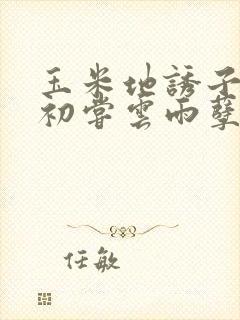 玉米地誘子
初嘗雲雨孽
任敏